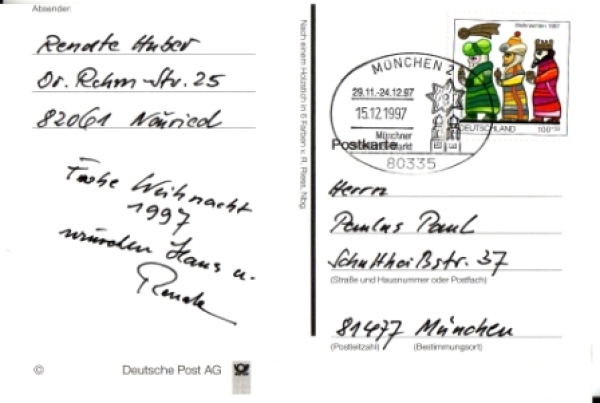 Absender:
Renate Huber
Dr. Rehm-Str. 25
82061 Neuried
Frohe Weihnacht
1997
wünschen Hans u.
Renate
©
Deutsche Post AG
Nach einem Holzstich in 6 Farben v. R. Riess, Nbg.
Weihnachten 1997
DEUTSCHLAND
100+50
MÜNCHEN 2
29.11.-24.12.97
15.12.1997
Münchner
markt
80335
Postkarte
Herrn
Paulus Paul
Schultheißstr. 37
(Straße und Hausnummer oder Postfach)
81477 München
(Postleitzahl) (Bestimmungsort)